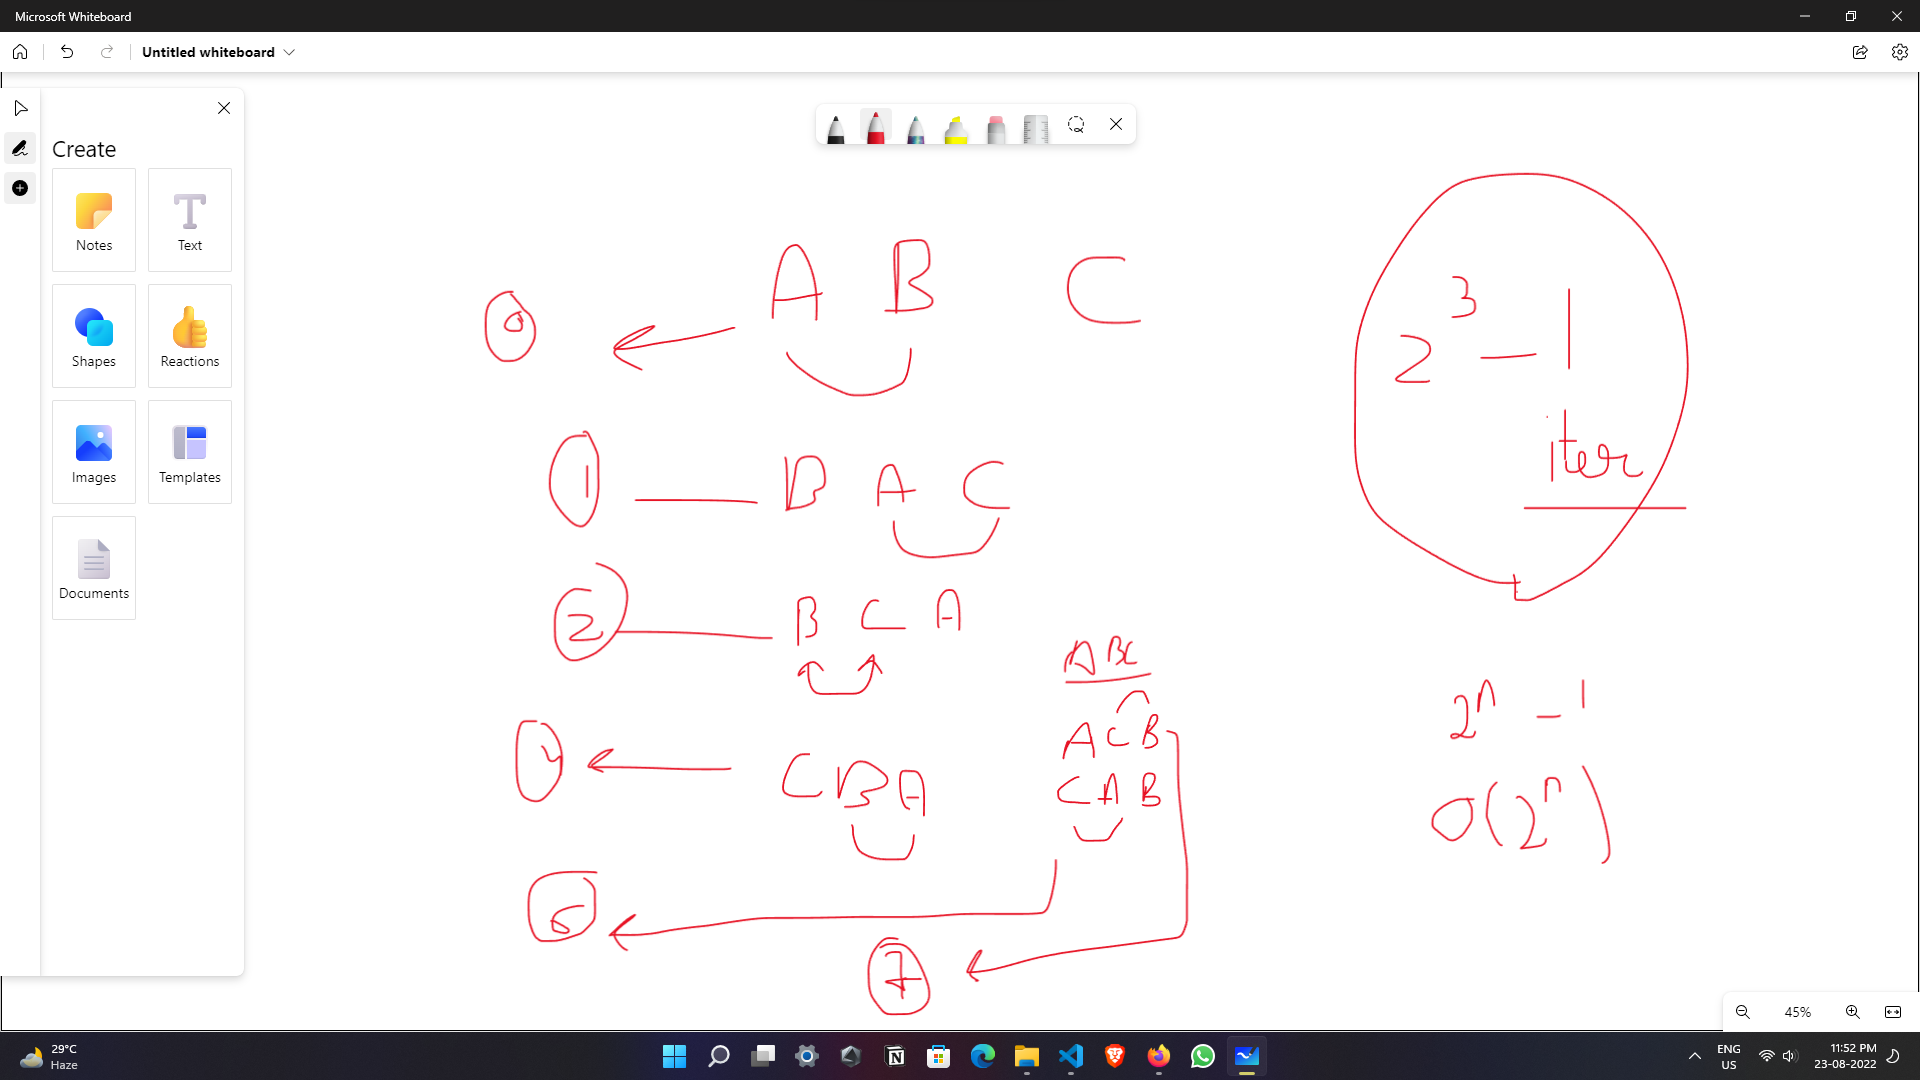 Microsoft Whiteboard
Untitled whiteboard
Create
Notes
Text
Shapes
Reactions
Images
Templates
Documents
0
A B C
1
B A C
2
B C A
C B A
7
ABC
ACB
CAB
2³ - 1
iter
2ⁿ - 1
O(2ⁿ)
45%
29°C
Haze
ENG
US
11:52 PM
23-08-2022